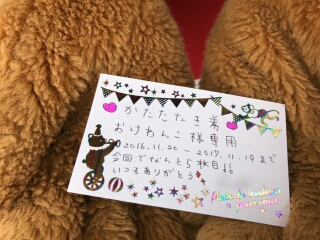 かたたたき券
おけわんこ様専用
2016.11.20 ~ 2017.11.19 まで
今回でなんと5枚目!!
いつもありがとう